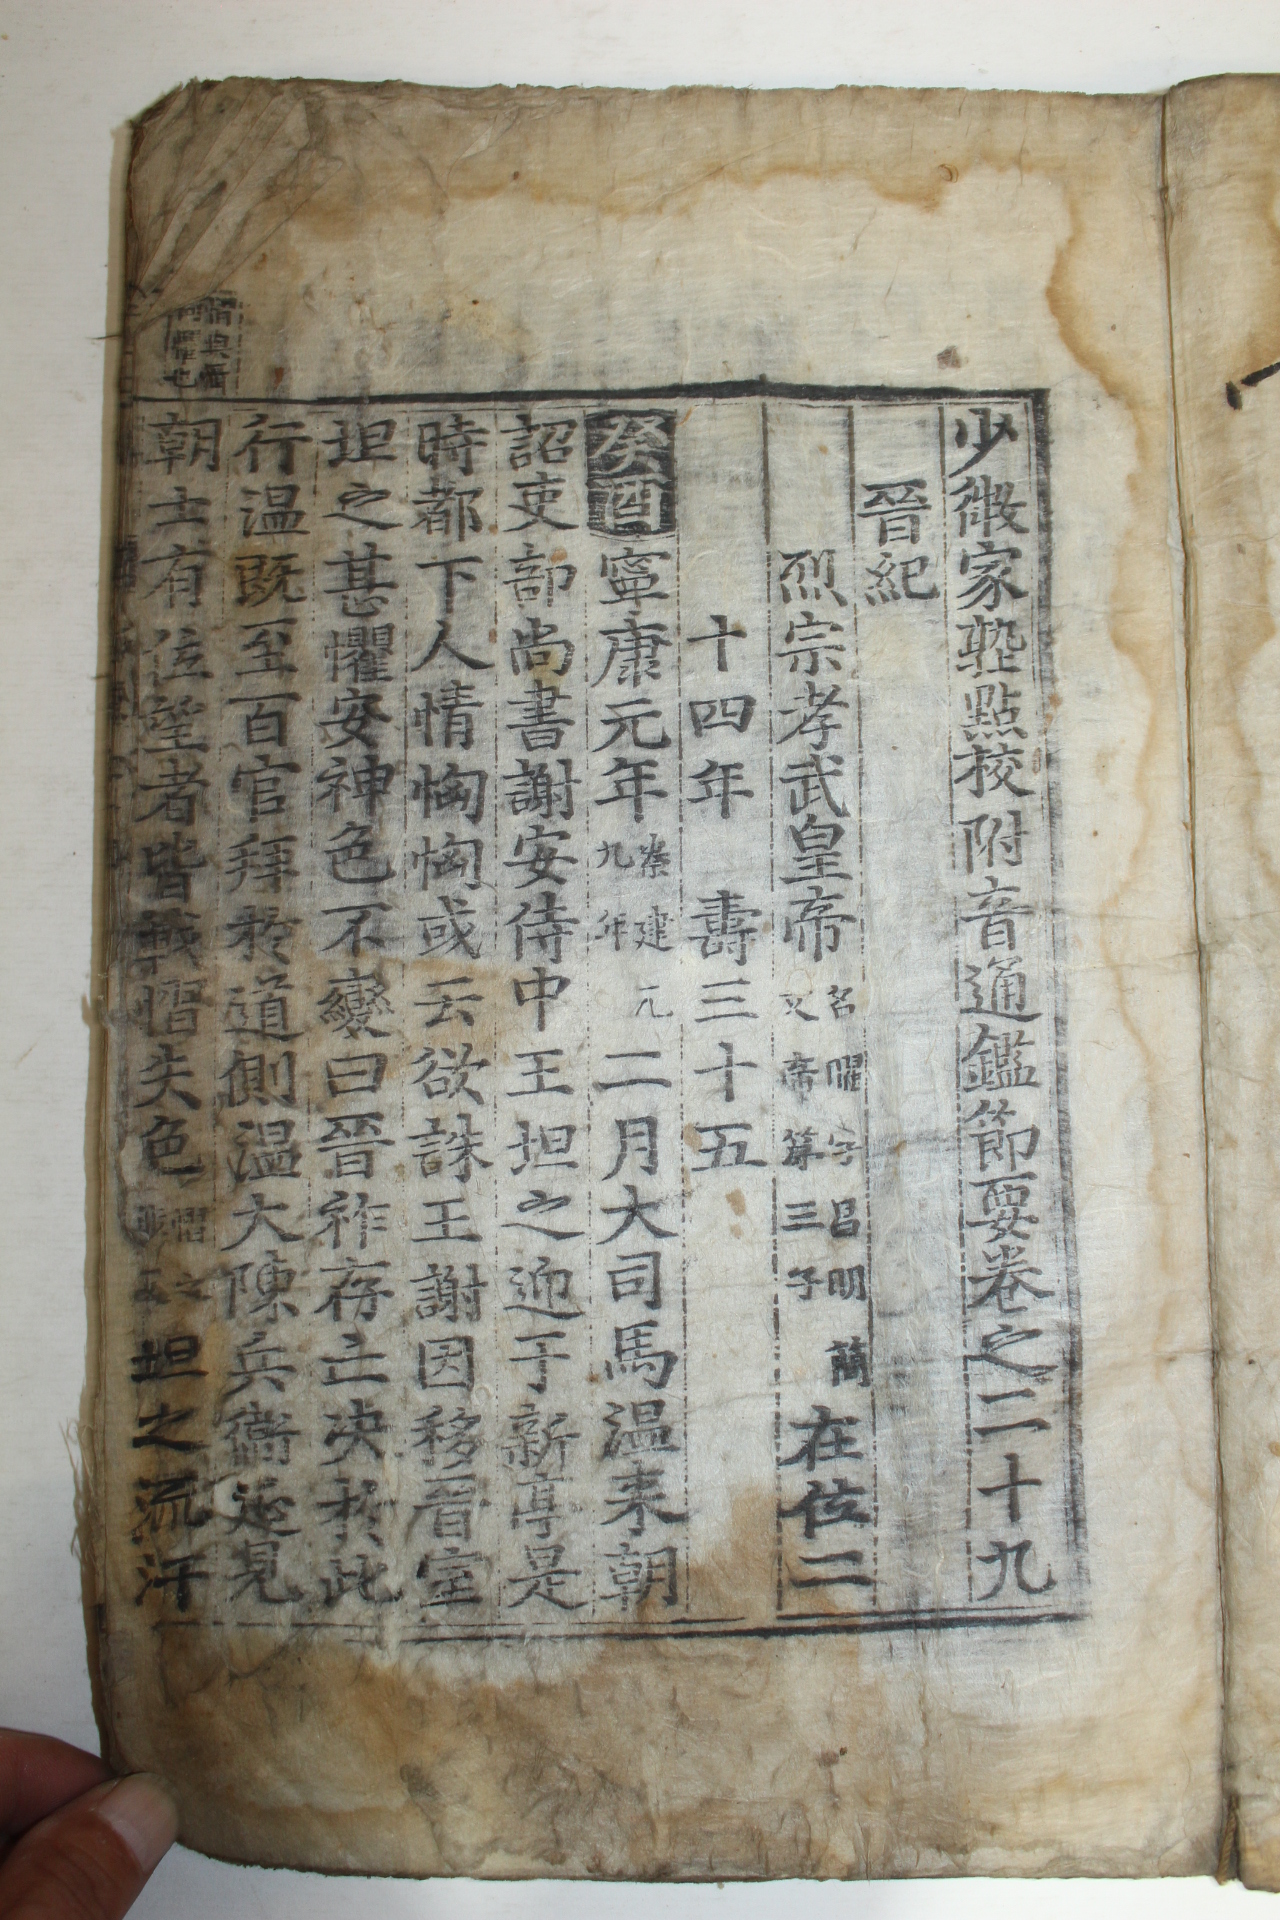 少微家塾點校附音通鑑節要卷之二十九
晉紀
烈宗孝武皇帝 名曜字昌明簡文帝第三子 在位二
十四年 壽三十五
癸酉寧康元年 秦建元九年 二月大司馬温来朝
詔吏部尚書謝安侍中王坦之迎于新亭是
時都下人情恟恟或云欲誅王謝因移晉室
坦之甚懼安神色不變曰晉祚存亡决於此
行温既至百官拜於道側温大陳兵衛延見
朝士有位望者皆戰慴失色 慴之 坦之流汗
慴與
懼也